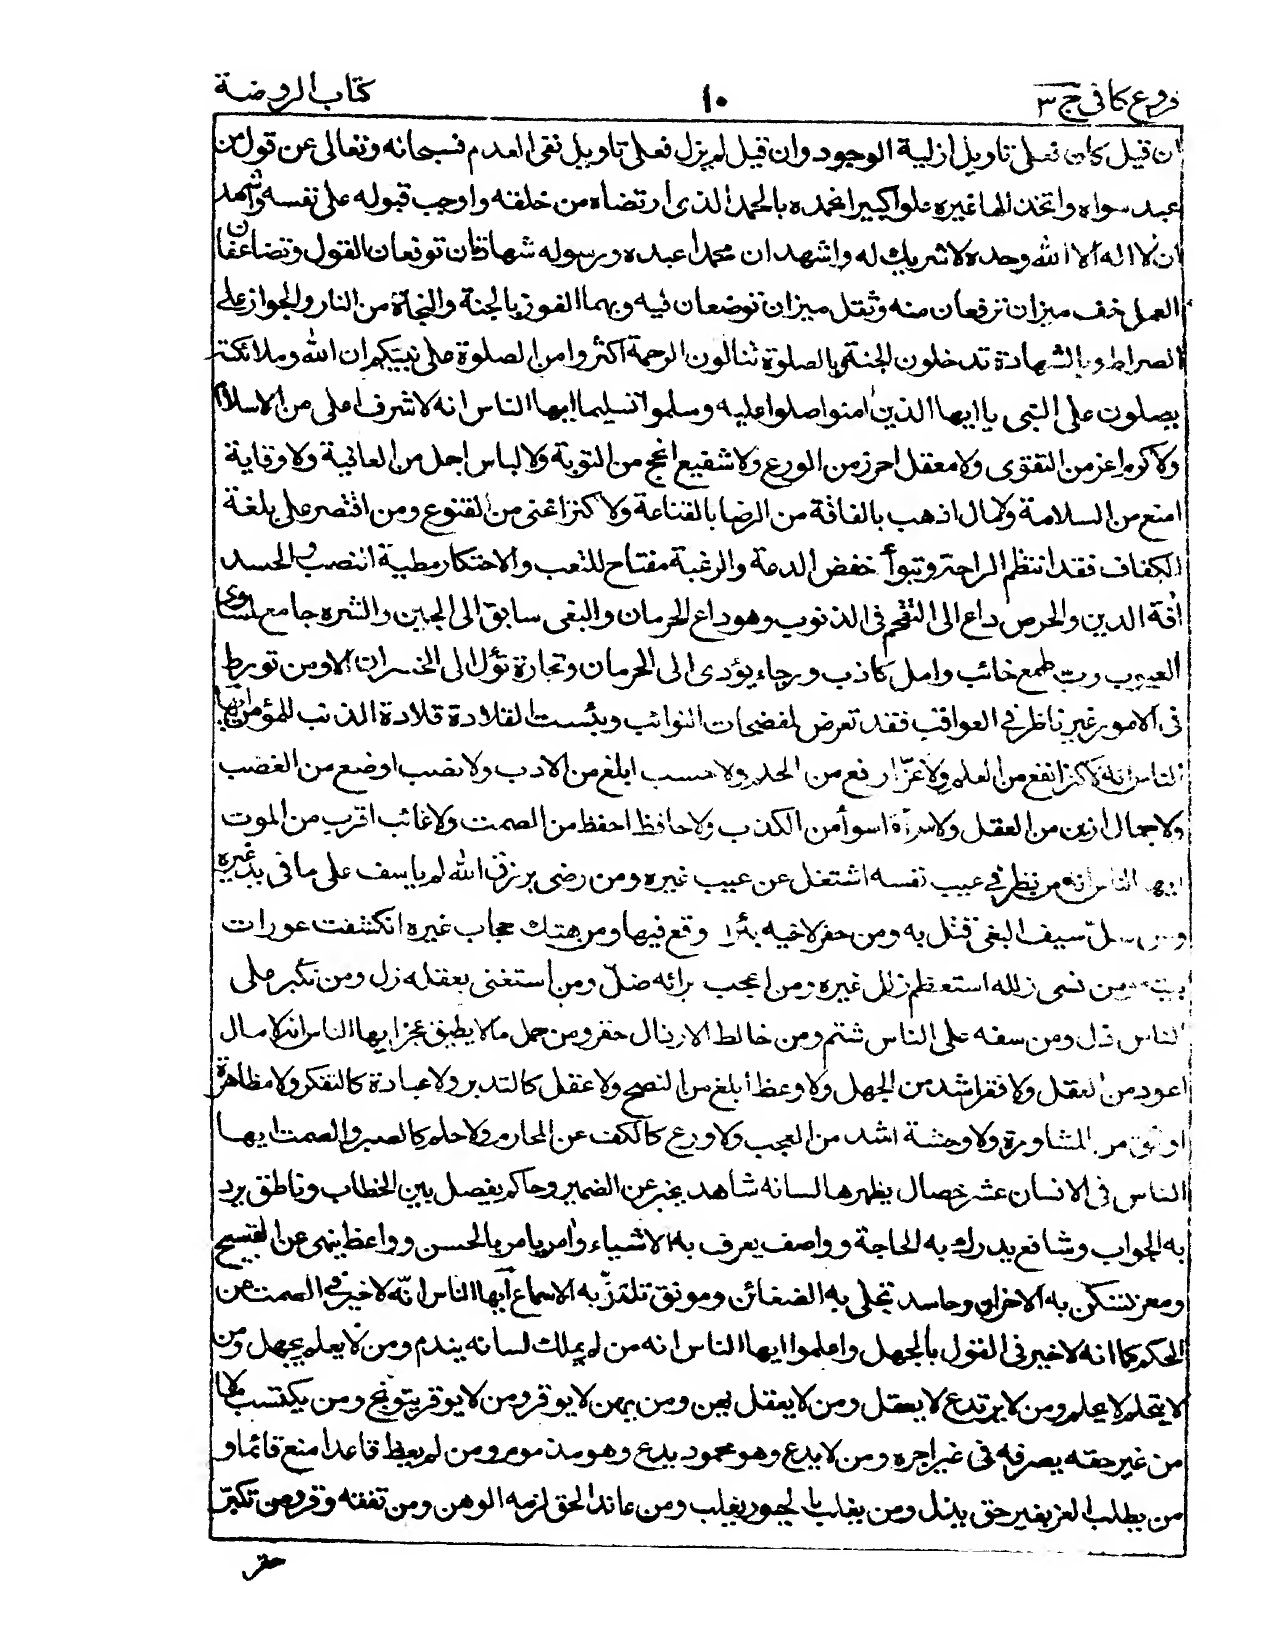 فروع كافي ج ٣
١٠
كتاب الروضة
ان قيل كان فعلى تاويل ازلية الوجود وان قيل لم يزل فعلى تاويل نفى العدم فسبحانه وتعالى عن قول من
عبد سواه واتخذ الها غيره علوا كبيرا نحمده بالحمد الذى ارتضاه من خلقه واوجب قبوله على نفسه واشهد
ان لا اله الا الله وحده لا شريك له واشهد ان محمدا عبده ورسوله شهادتان ترفعان القول وتضاعفان
العمل خف ميزان ترفعان منه وثقل ميزان توضعان فيه وبهما الفوز بالجنة والنجاة من النار والجواز على
الصراط وبالشهادة تدخلون الجنة وبالصلوة تنالون الرحمة اكثروا من الصلوة على نبيكم ان الله وملائكته
يصلون على النبى يا ايها الذين امنوا صلوا عليه وسلموا تسليما ايها الناس انه لا شرف اعلى من الاسلام
ولا كرم اعز من التقوى ولا معقل احرز من الورع ولا شفيع انجح من التوبة ولا لباس اجل من العافية ولا وقاية
امنع من السلامة ولا مال اذهب بالفاقة من الرضا بالقناعة ولا كنز اغنى من القنوع ومن اقتصر على بلغة
الكفاف فقد انتظم الراحة وتبوأ خفض الدعة والرغبة مفتاح للتعب والاحتكار مطية النصب والحسد
افة الدين والحرص داع الى التقحم فى الذنوب وهو داع الحرمان والبغى سابق الى الحين والشره جامع لمساوى
العيوب رب طمع خائب وامل كاذب ورجاء يؤدى الى الحرمان وتجارة تؤل الى الخسران الا ومن تورط
فى الامور غير ناظر فى العواقب فقد تعرض لمفضحات النوائب وبئست القلادة قلادة الذنب للمؤمن ايها
الناس انه لا كنز انفع من العلم ولا عز ارفع من الحلم ولا حسب ابلغ من الادب ولا نصب اوضع من الغضب
ولا جمال ازين من العقل ولا سوأة اسوأ من الكذب ولا حافظ احفظ من الصمت ولا غائب اقرب من الموت
ايها الناس انه من نظر فى عيب نفسه اشتغل عن عيب غيره ومن رضى برزق الله لم ياسف على ما فى يد غيره
ومن سل سيف البغى قتل به ومن حفر لاخيه بئرا وقع فيها ومن هتك حجاب غيره انكشفت عورات
بيته ومن نسى زلله استعظم زلل غيره ومن اعجب برائه ضل ومن استغنى بعقله زل ومن تكبر على
الناس ذل ومن سفه على الناس شتم ومن خالط الارذال حقر ومن حمل ما لا يطيق عجز ايها الناس انه لا مال
اعود من العقل ولا فقر اشد من الجهل ولا وعظ ابلغ من النصح ولا عقل كالتدبر ولا عبادة كالتفكر ولا مظاهرة
اوثق من المشاورة ولا وحشة اشد من العجب ولا ورع كالكف عن المحارم ولا حلم كالصبر والصمت ايها
الناس فى الانسان عشر خصال يظهرها لسانه شاهد يخبر عن الضمير وحاكم يفصل بين الخطاب وناطق يرد
به الجواب وشافع يدرك به الحاجة وواصف يعرف به الاشياء وامر يامر بالحسن وواعظ ينهى عن القبيح
ومعز تسكن به الاحزان وحاسد تجلى به الضغائن ومونق تلتذ به الاسماع ايها الناس انه لا خير فى الصمت عن
الحكم كما انه لا خير فى القول بالجهل واعلموا ايها الناس انه من لم يملك لسانه يندم ومن لا يعلم يجهل ومن
لا يتحلم لا يحلم ومن لا يرتدع لا يعقل ومن لا يعقل يهن ومن يهن لا يوقر ومن لا يوقر يتوبخ ومن يكتسب مالا
من غير حقه يصرفه فى غير اجره ومن لا يدع وهو محمود يدع وهو مذموم ومن لم يعط قاعدا منع قائما و
من يطلب العز بغير حق يذل ومن يغلب بالجور يغلب ومن عاند الحق لزمه الوهن ومن تفقه وقر ومن تكبر
حقر